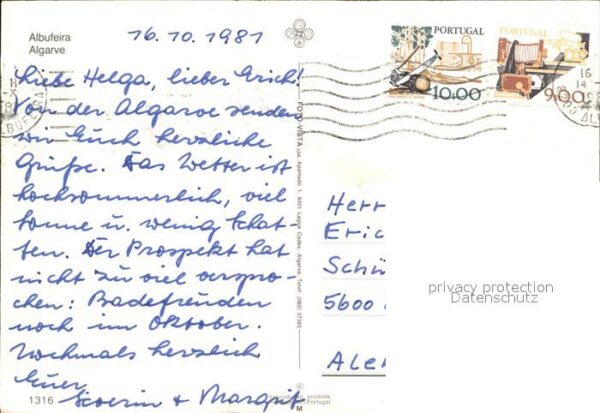 Albufeira
Algarve
16.10.1981
Liebe Helga, lieber Erich!
Von der Algarve senden
wir Euch herzliche
Grüße. Das Wetter ist
hochsommerlich, viel
Sonne u. wenig Schat-
ten. Der Prospekt hat
nicht zu viel verspro-
chen: Badefreuden
noch im Oktober.
Nochmals herzlich
Euer
Severin + Margrit
1316
FOTO-VISTA Lda. Apartado 1. 8401 Lagoa Codex. Algarve. Telef. (082) 57265
PORTUGAL
10.00
PORTUGAL
9.00
16
14
Herr
Eric
Schü
5600
Ale
privacy protection
Datenschutz
proibida
Portugal
M